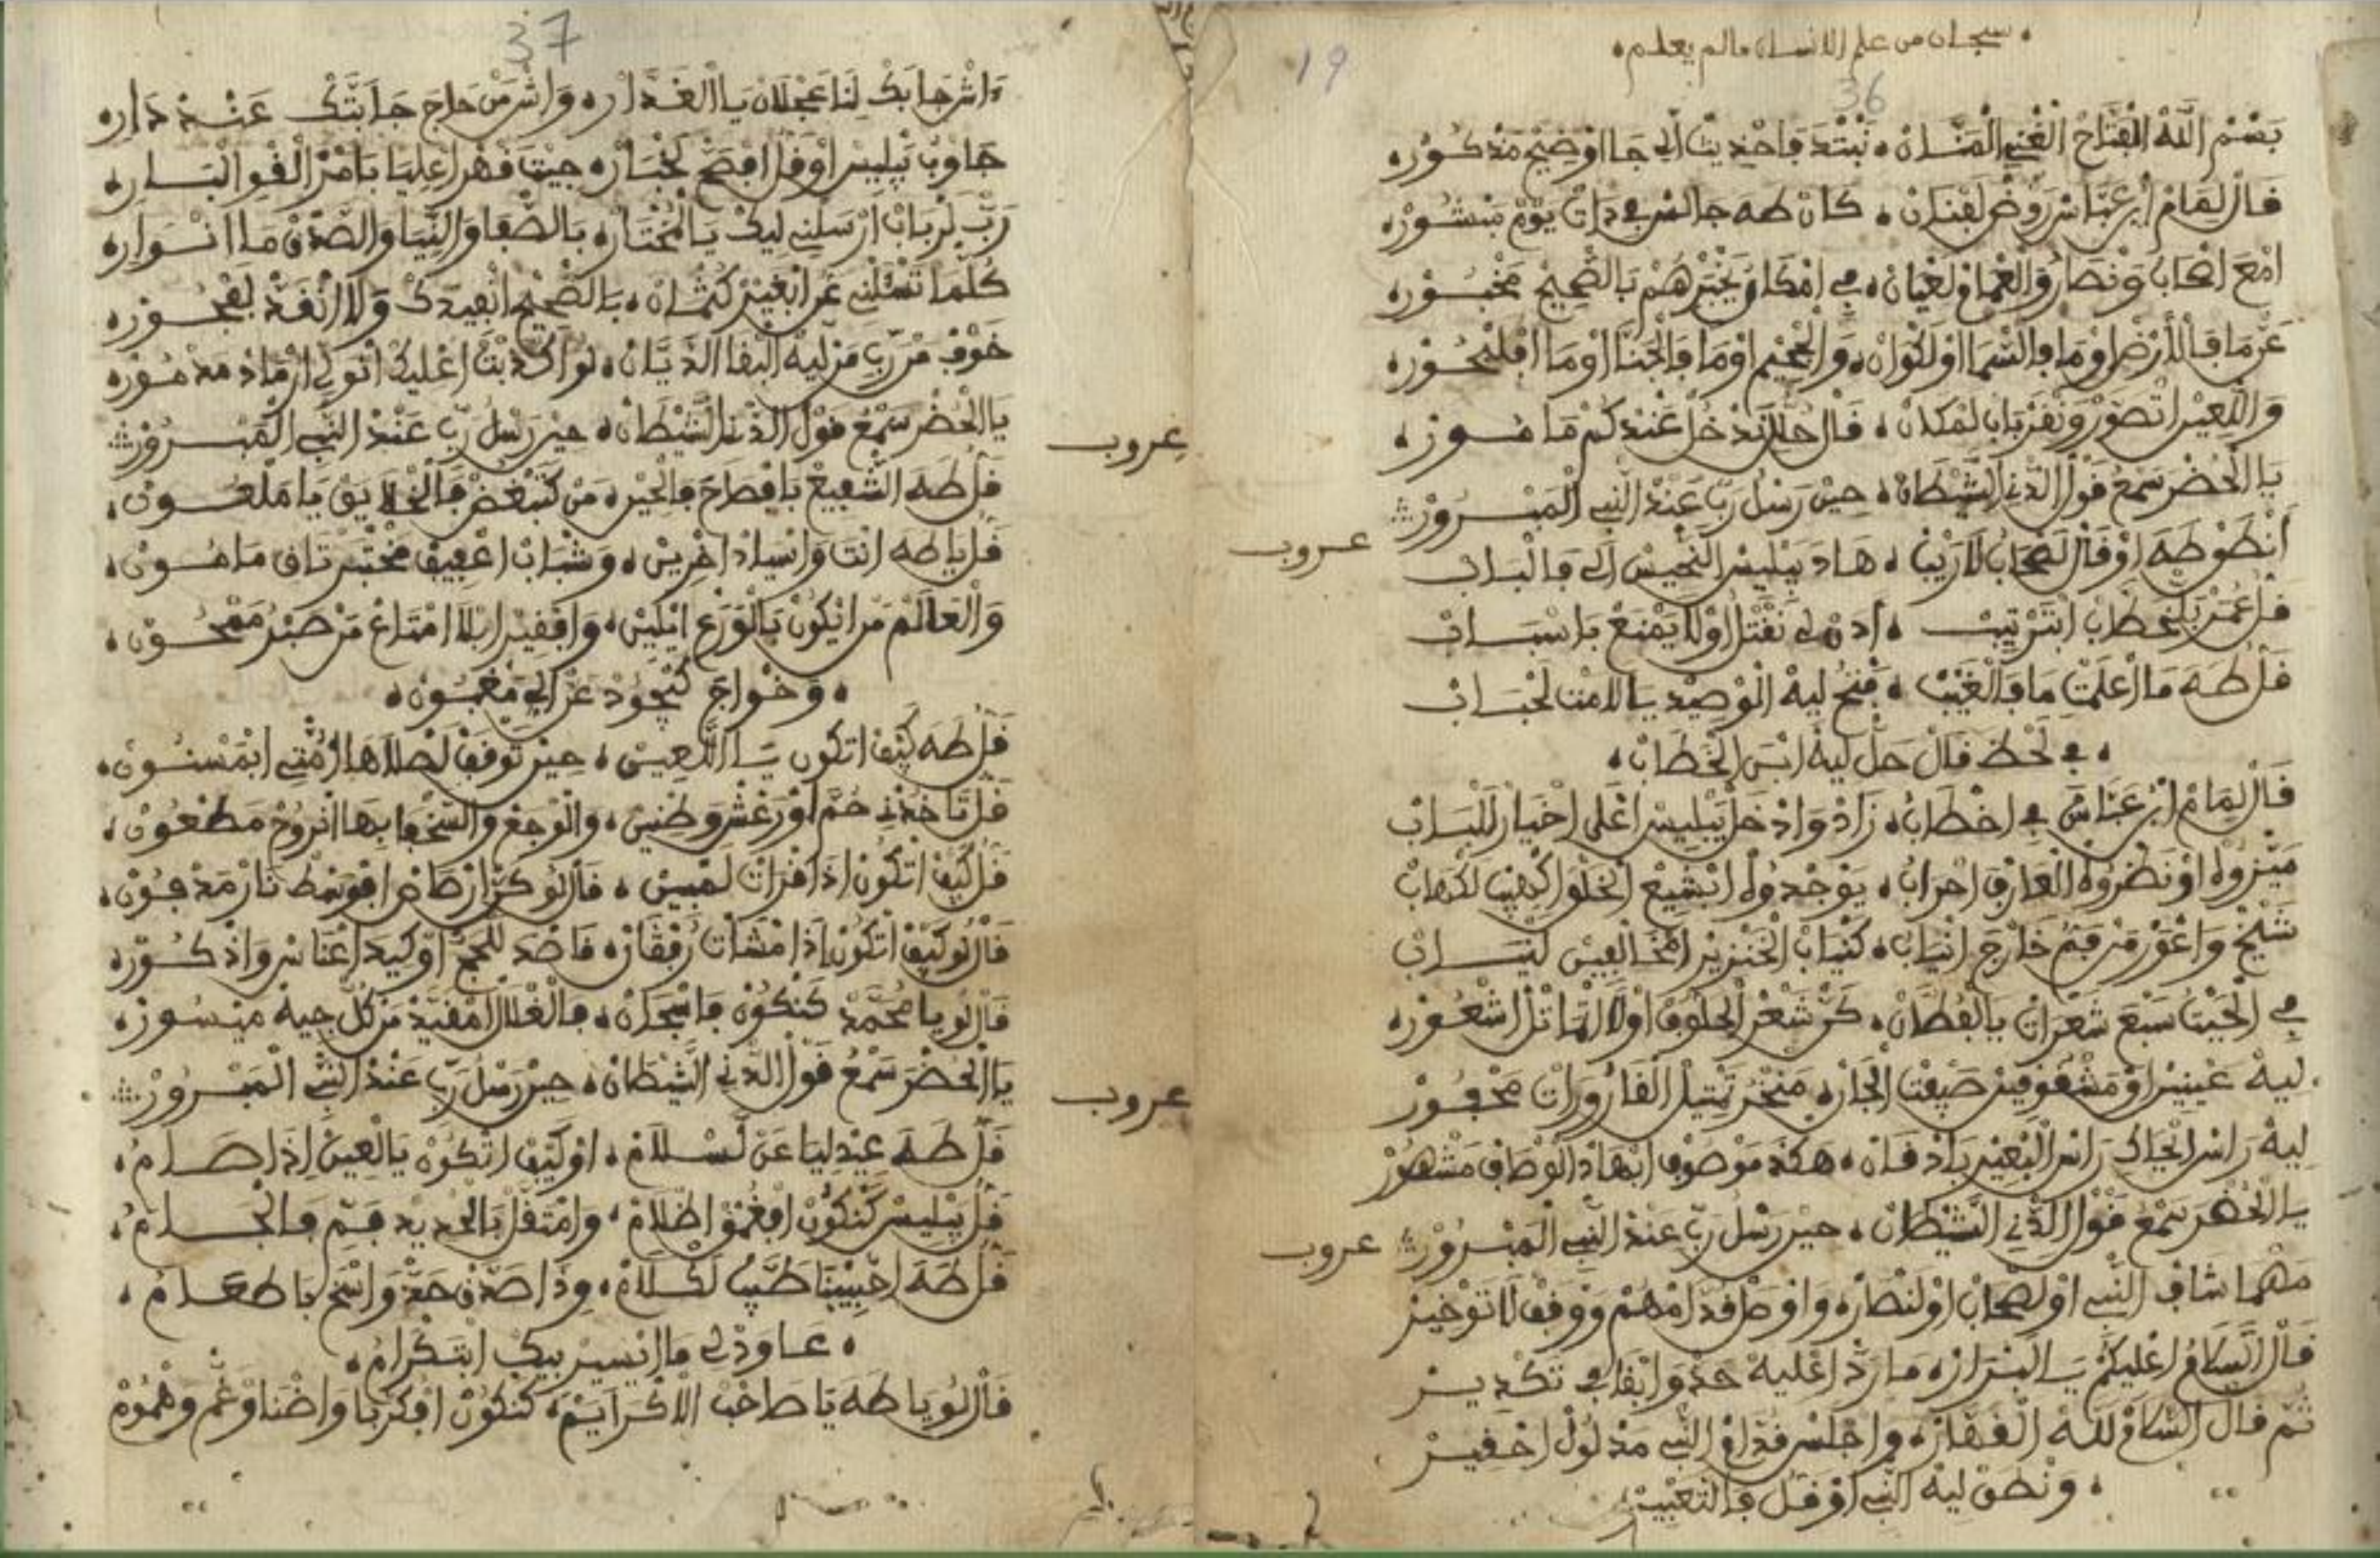 سبحان من علم الانسان ما لم يعلم
19
36
بسم الله الفتاح الغني المنان نبتد فاحديث الي جا اوضيح مذكور
فال لمام ابن عباس روض لفنان كان طه جالس في ذات يوم منشور
امع اصحاب ونصار والعمام لعيان في امكان يخبرهم بالصحيح مخبور
عن ما فالأرض اوما فالسما اولكوان والجحيم اوما فالجنا اوما افلبحور
واللعين اتصور ونفر باب لمكان فال حل ندخل عندكم مامور
يا الحضر سمع فول الدني الشيطان حين رسل رب عند النبي المبرور
عروب
انطو طه اوفال لصحاب لا ريب هاد يبليس النجيس الي فالباب
فل عمر بلخطاب ابترتيب ادن لي نفتل اولا يمنع باسباب
فل طه ما اعلمت ما فالغيب فتح ليه الوصيد يا لامت لحباب
في لحظ فال حل ليه ابن الخطاب
فال لمام ابن عباس في اخطاب زاد وادخل يبليس اعلى اخيار للباب
ميزوه اونظروه العارف احراب يوجدوه ابشيع الخلوا كهيب لكهاب
شيخ واعور من فم خارج انياب كنياب الخنزير امخالفين لنياب
في الحيت سبع شعرات يالفطان كن شعر الحلوف اولا اتماثل اشعور
ليه عينين اومشفوفين صيفت الجان منخر تمتيل الفارورات محفور
ليه راس اتحاك راس البعير باذفان هكذ موصوف ابهاد الوصاف مشهور
يا الحضر سمع فول الدني الشيطان حين رسل رب عند النبي المبرور
عروب
مهما شاف النبي اولصحاب اولنصار واوصل فدامهم ووفف لا توخير
فال السام اعليكم يا لبرار ما رد اعليه حد وابفا في تكدير
ثم فال السام لله الغفار واجلس فدام النبي مذلول احفير
ونطق ليه النبي اوفل فالتعبير
37
اش جابك لنا عجلان يا الغدار واش من حاج جابتك عند دار
جاوب يبليس اوفل افصح لخبار جيت فهر اعليا بامر الفو البار
رب لرباب ارسلني ليك يا المختار بالصفا والنيا والصدق ما انوار
كلما تسئلني عن ابغير كتمان بالصحيح انعيدك ولا انفد بفجور
خوف من رب من ليه البفا الديان لو اكدبت اعليك انولي ارماد مدمور
يا الحضر سمع فول الدني الشيطان حين رسل رب عند النبي المبرور
عروب
فل طه الشفيع بافصاح فالحين من كتبغض فالخلايق يا ملعون
فل يا طه انت وانسياد اخرين وشباب اعفيف مختبر تاق مامون
والعالم من ايكون بالورع ايلين وافقير ابلا امتاع من صبر ممحون
وخواج كيجود عن الي مغبون
فل طه كيف اتكون يا اللعين حين توفف لصلاها امتي ابمسنون
فل تاخدني حم اورعش وطنين والوجع والسخفا بها الروح مطعون
فل كيف اتكون اذا فرات لمبين فالو كن ارصاص افوسط نار مدفون
فالو كيف اتكون اذا مشات رفقان فاصد للحج اوكيد اعناس واذكور
فالو يا محمد كنكون فاسجان فالغلال امفيد من كل جيه ميسور
يا الحضر سمع فول الدني الشيطان حين رسل رب عند النبي المبرور
عروب
فل طه عيد ليا عن لسلام اوكيف اتكون يالعين اذا صام
فل يبليس كنكون افغمق اظلام وامتفل بالحديد فم فالجام
فل طه احبيبنا طيب لكلام وذا صدق حد واسخ باطعام
عاودلي ما ايسير بيك ابتكرام
فالو يا طه يا صاحب الاكرايم كنكون افكربا واضنا وغم وهموم